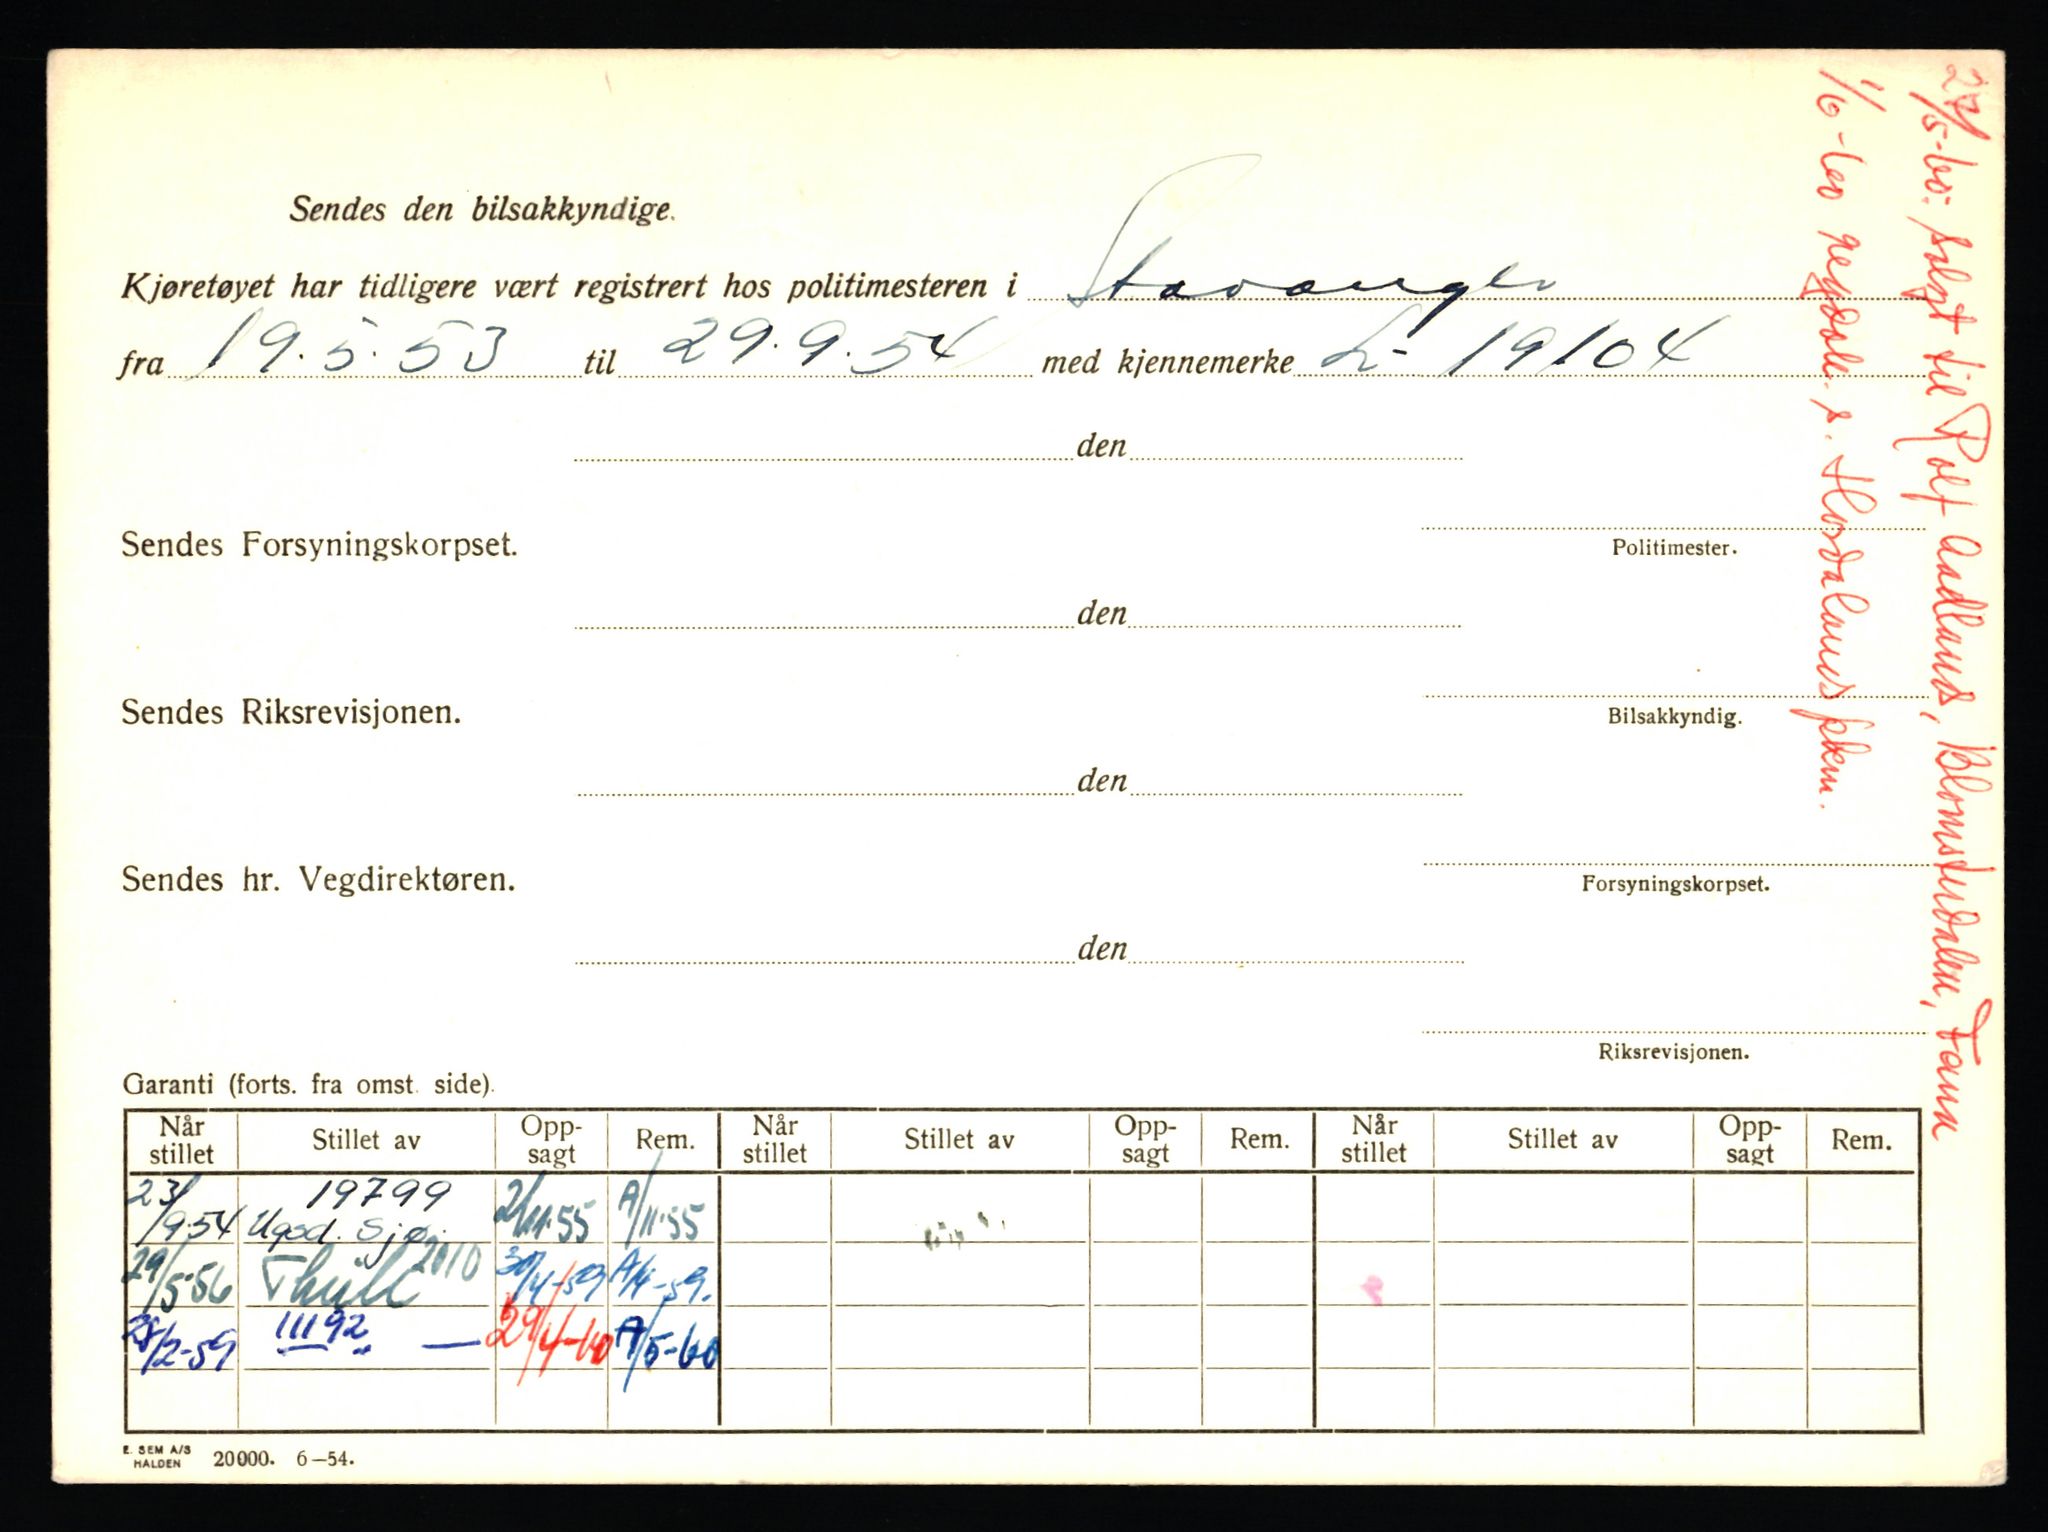 Sendes den bilsakkyndige.
Kjøretøyet har tidligere vært registrert hos politimesteren i Stavanger
fra 19.5.53 til 29.9.54 med kjennemerke L-19104
den
Sendes Forsyningskorpset.
Politimester.
den
Sendes Riksrevisjonen.
Bilsakkyndig.
den
Sendes hr. Vegdirektøren.
Forsyningskorpset.
den
Riksrevisjonen.
Garanti (forts. fra omst. side).
Når stillet Stillet av Opp-sagt Rem. Når stillet Stillet av Opp-sagt Rem. Når stillet Stillet av Opp-sagt Rem.
23/9.54 19799 Ugsd. Sjø. 2/11.55 A/11.55
29/5.56 2010 30/4-59 A/4-59.
28/2-59 11192 — 29/4-60 A/5-60
E. SEM A/S
HALDEN 20000. 6—54.
27/5-60: solgt til Rolf Aadland, Blomsterdalen, Fana
1/6-60 s. Hordaland